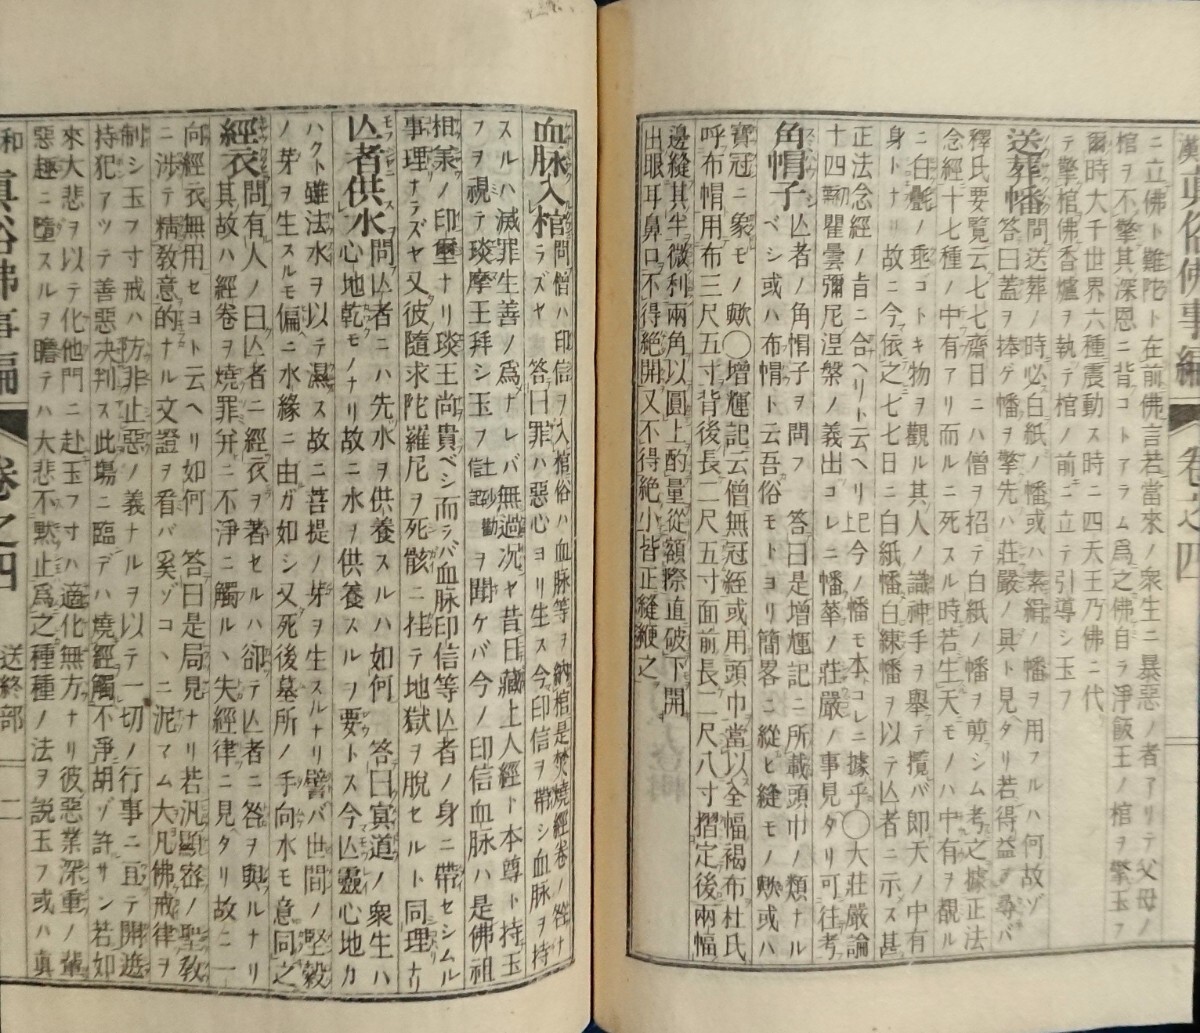 難眞俗佛事編 卷之四
ニ立佛ト難陀ト在前佛言若當來ノ衆生ニ暴惡ノ者アリテ父母ノ
棺ヲ不擎其深恩ニ背コトアラム爲之佛自ラ淨飯王ノ棺ヲ擎玉フ
爾時大千世界六種震動ス時ニ四天王乃佛ニ代
テ擎棺佛香爐ヲ執テ棺ノ前ニ立テ引導シ玉フ
送葬幡 問送葬ノ時必白紙ノ幡或ハ素絹ノ幡ヲ用フルハ何故ゾ
答曰蓋ヲ捧ゲ幡ヲ擎先ハ莊嚴ノ具ト見タリ若得益ヲ尋バ
釋氏要覽云七七齋日ニハ僧ヲ招テ白紙ノ幡ヲ剪シム考之據正法
念經十七種ノ中有アリ而ルニ死スル時若生天モノハ中有ヲ覩ル
ニ白氎ノ垂コトキ物ヲ觀ル其人ノ識神手ヲ擧テ攬バ即天ノ中有
身トナリ故ニ今依之七七日ニ白紙幡白練幡ヲ以テ亾者ニ示ス甚
正法念經ノ旨ニ合ヘリト云ヘリ已上今ノ幡モ本コレニ據乎〇大莊嚴論
十四初瞿曇彌尼涅槃ノ義出コレニ幡華ノ莊嚴ノ事見タリ可往考
角帽子 亾者ノ角帽子ヲ問フ 答曰是增輝記ニ所載頭巾ノ類ナル
ベシ或ハ布帽ト云吾俗モトヨリ簡畧ニ從ヒ縫モノ歟或ハ
寶冠ニ象モノ歟〇增輝記云僧無冠絰或用頭巾當以全幅褐布杜氏
呼布帽用布三尺五寸背後長二尺五寸面前長二尺八寸摺定後兩幅
邊縫其半微利兩角以圓上酌量從額際直破下開
出眼耳鼻口不得絶開又不得絶小皆正縫鞭之
血脉入棺 問僧ハ印信ヲ入棺俗ハ血脉等ヲ納棺是焚燒經卷ノ咎ナ
ラズヤ 答曰罪ハ惡心ヨリ生ス今印信ヲ帶シ血脉ヲ持
スルハ滅罪生善ノ爲ナレバ無過況ヤ昔日藏上人經ト本尊ト持玉
フヲ視テ琰摩王拜シ玉フヲ聞ケバ今ノ印信血脉ハ是佛祖
相兼ノ印璽ナリ琰王尚貴ベシ而ラバ血脉印信等亾者ノ身ニ帶セシムル
事理ナラズヤ又彼隨求陀羅尼ヲ死骸ニ挂テ地獄ヲ脫セルト同理ナリ
亾者供水 問亾者ニハ先水ヲ供養スルハ如何 答曰冥道ノ衆生ハ
心地乾モノナリ故ニ水ヲ供養スルヲ要トス今亾靈心地カ
ハクト雖法水ヲ以テ濕ス故ニ菩提ノ芽ヲ生スルナリ譬バ世間ノ堅穀
ノ芽ヲ生スルモ偏ニ水緣ニ由ガ如シ又死後墓所ノ手向水モ意同之
經衣 問有人ノ曰亾者ニ經衣ヲ著セルハ卻テ亾者ニ咎ヲ與ルナリ
其故ハ經卷ヲ燒罪幷ニ不淨ニ觸ル、失經律ニ見タリ故ニ一
向經衣無用セヨト云ヘリ如何 答曰是局見ナリ若汎顯密ノ聖敎
ニ涉テ精敎意的ナル文證ヲ看バ奚ゾコ、ニ泥マム大凡佛戒律ヲ
制シ玉フ寸戒ハ防非止惡ノ義ナルヲ以テ一切ノ行事ニ亘テ開遮
持犯アツテ善惡決判ス此塲ニ臨デハ燒經觸不淨胡ゾ許サン若如
來大悲ヲ以テ化他門ニ赴玉フ寸ハ適化無方ナリ彼惡業深重ノ輩
惡趣ニ墮スルヲ瞻テハ大悲不默止爲之種種ノ法ヲ說玉フ或ハ眞
和眞俗佛事編 卷之四 送終部 二